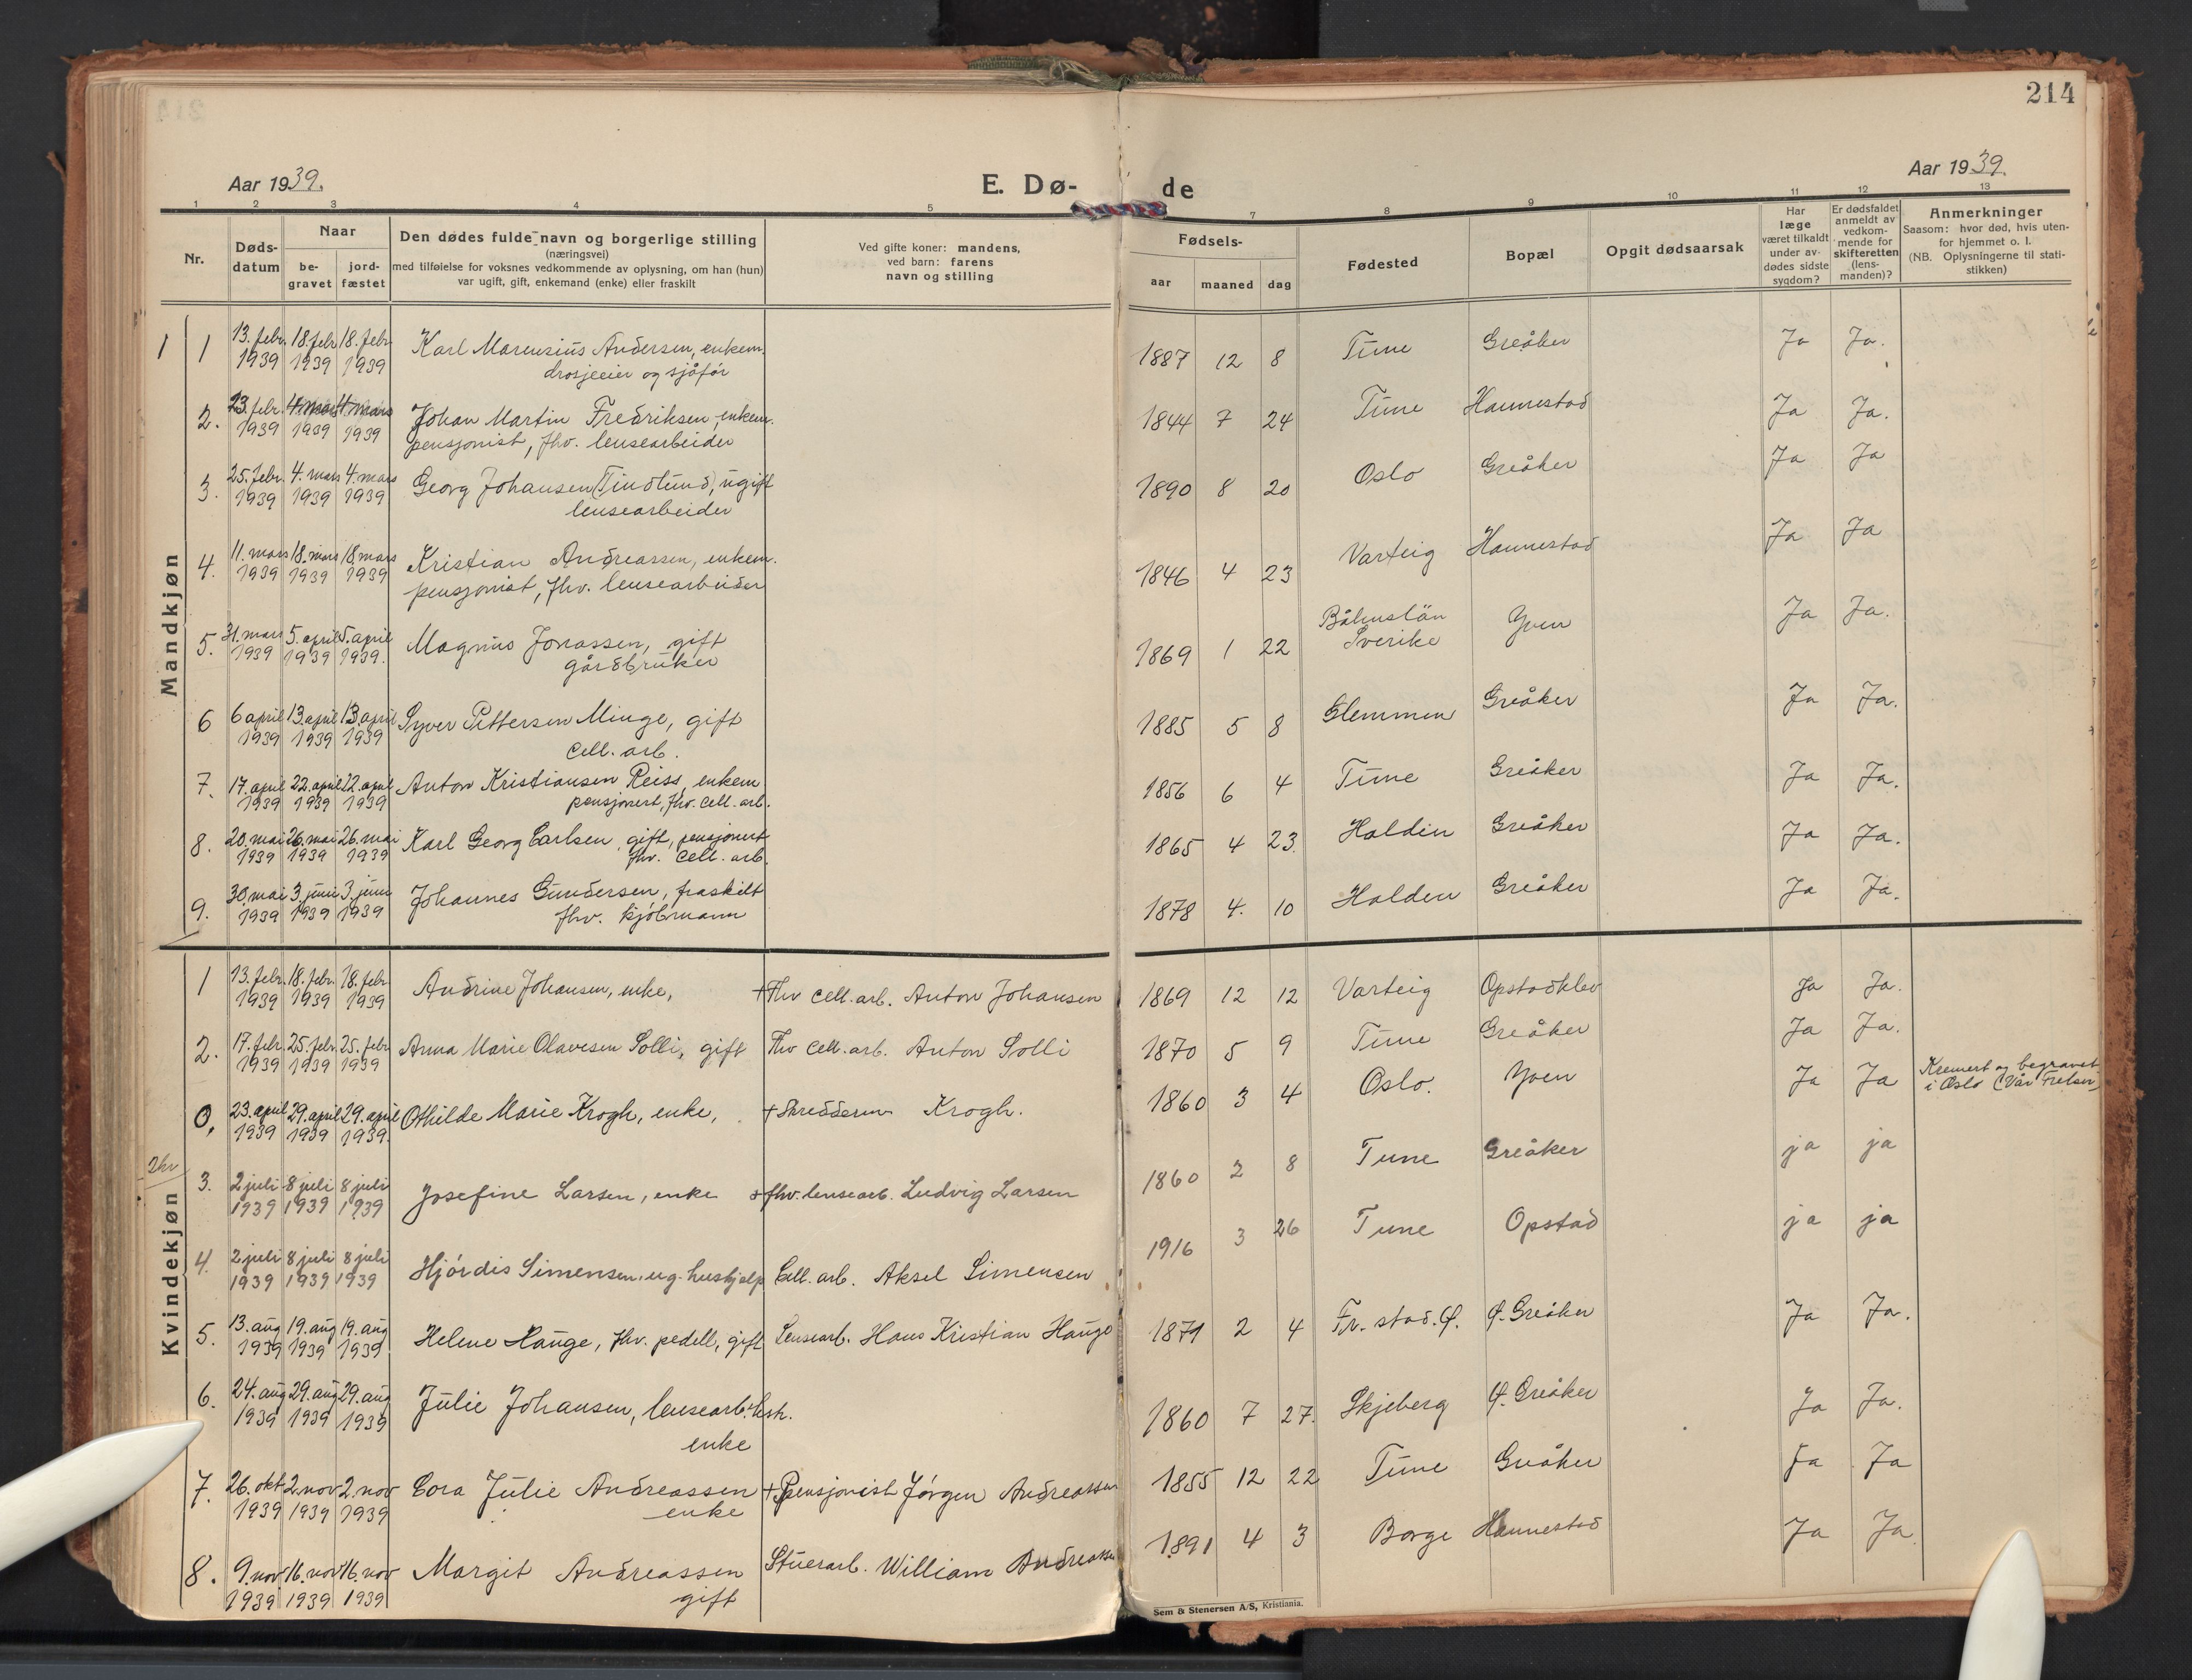 214
Aar 1939.
E. Dø-
de
Aar 1939.
1 2 3 4 5 7 8 9 10 11 12 13
Nr.
Døds-
datum
Naar
be-
gravet
jord-
fæstet
Den dødes fulde navn og borgerlige stilling
(næringsvei)
med tilføielse for voksnes vedkommende av oplysning, om han (hun)
var ugift, gift, enkemand (enke) eller fraskilt
Ved gifte koner: mandens,
ved barn: farens
navn og stilling
Fødsels-
aar maaned dag
Fødested
Bopæl
Opgit dødsaarsak
Har
læge
været tilkaldt
under av-
dødes sidste
sygdom?
Er dødsfaldet
anmeldt av
vedkom-
mende for
skifteretten
(lens-
manden)?
Anmerkninger
Saasom: hvor død, hvis uten-
for hjemmet o. l.
(NB. Oplysningerne til stati-
stikken)
Mandkjøn
1 1 13. febr. 18. febr. 18. febr. Karl Marensius Andersen, enkem. 1887 12 8 Tune Greåker Ja Ja.
1939 1939 1939 drosjeeier og sjåfør
2. 23. febr. 4. mars 4. mars Johan Martin Fredriksen, enkem. 1844 7 24 Tune Hannestad Ja Ja.
1939 1939 1939 pensjonist, fhv. lensearbeider
3. 25. febr. 4. mars 4. mars Georg Johansen (Tindlund), ugift 1890 8 20 Oslo Greåker Ja Ja
1939 1939 1939 lensearbeider
4. 11. mars 18. mars 18. mars Kristian Andreassen, enkem. 1846 4 23 Varteig Hannestad Ja Ja
1939 1939 1939 pensjonist, fhv. lensearbeider
5. 31. mars 5. april 5. april Magnus Jonassen, gift 1869 1 22 Båhuslän Yven Ja Ja.
1939 1939 1939. gårdbruker Sverike
6 6 april 13. april 13. april Syver Pettersen Minge, gift 1885 5 8 Glemmen Greåker Ja Ja.
1939 1939 1939 Cell. arb.
7. 17. april 22. april 22. april Anton Kristiansen Reiss, enkem 1856 6 4 Tune Greåker Ja Ja.
1939 1939 1939 pensjonert, fhv. cell. arb.
8. 20. mai 26. mai 26. mai Karl Georg Carlsen, gift, pensjonert 1865 4 23. Halden Greåker Ja Ja.
1939 1939 1939 fhv. cell. arb.
9. 30. mai 3. juni 3. juni Johannes Gundersen, fraskilt 1878 4. 10 Halden Greåker Ja Ja.
1939 1939 1939 fhv. kjøbmann
Kvindekjøn
1 13. febr. 18. febr. 18. febr. Andrine Johansen, enke, +Fhv cell. arb. Anton Johansen 1869 12 12 Varteig Opstadklev Ja Ja.
1939 1939 1939
2. 17. febr. 25. febr. 25. febr. Anna Marie Olavesen Solli, gift Fhv cell. arb. Anton Solli 1870 5 9 Tune Greåker Ja Ja.
1939 1939 1939
0, 23. april 29. april 29. april Othilde Marie Krogh, enke, + Skredderm Krogh. 1860 3 4 Oslo. Yven Ja Ja Kremert og begravet
1939 1939 1939. i Oslo (Vår Frelser)
3. 2 juli 8 juli 8 juli Josefine Larsen, enke + fhv. lensearb. Ludvig Larsen 1860 2 8 Tune Greåker ja ja
1939 1939 1939
4. 2 juli 8 juli 8 juli Hjørdis Simensen, ug. hushjelp Cell. arb. Aksel Simensen 1916 3 26 Tune Opstad ja ja
1939 1939 1939
5. 13. aug 19. aug 19. aug Helene Hauge, fhv. pedell, gift Lensearb. Hans Kristian Hauge 1871 2 4 Fr. stad. Ø. Ø. Greåker Ja Ja.
1939 1939 1939
6. 24. aug 29. aug 29. aug Julie Johansen, lensearb. 1860 7 27. Skjeberg Ø. Greåker Ja Ja.
1939 1939 1939 enke
7. 26. okt 2. nov 2. nov Cora Julie Andreassen + Pensjonist Jørgen Andreassen 1855 12 22 Tune Greåker Ja Ja
1939 1939 1939 enke
8. 9. nov 16. nov 16. nov Margit Andreassen Stuerarb. William Andreassen 1891 4 3 Borge Hannestad Ja Ja
1939 1939 1939 gift
Sem & Stenersen A/S, Kristiania.